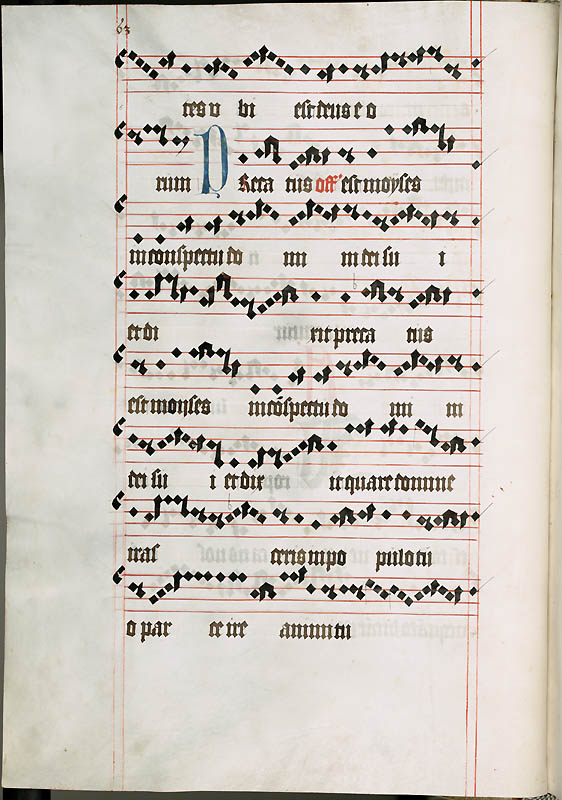 63
tes u bi est deus e o
rum Preca tus off est moyses
in conspectu do mi ni dei su i
et di xit preca tus
est moyses in cōspectu do mi ni
dei su i et dix it quare domine
iras ceris in po pulo tu
o par ce ire anime tu